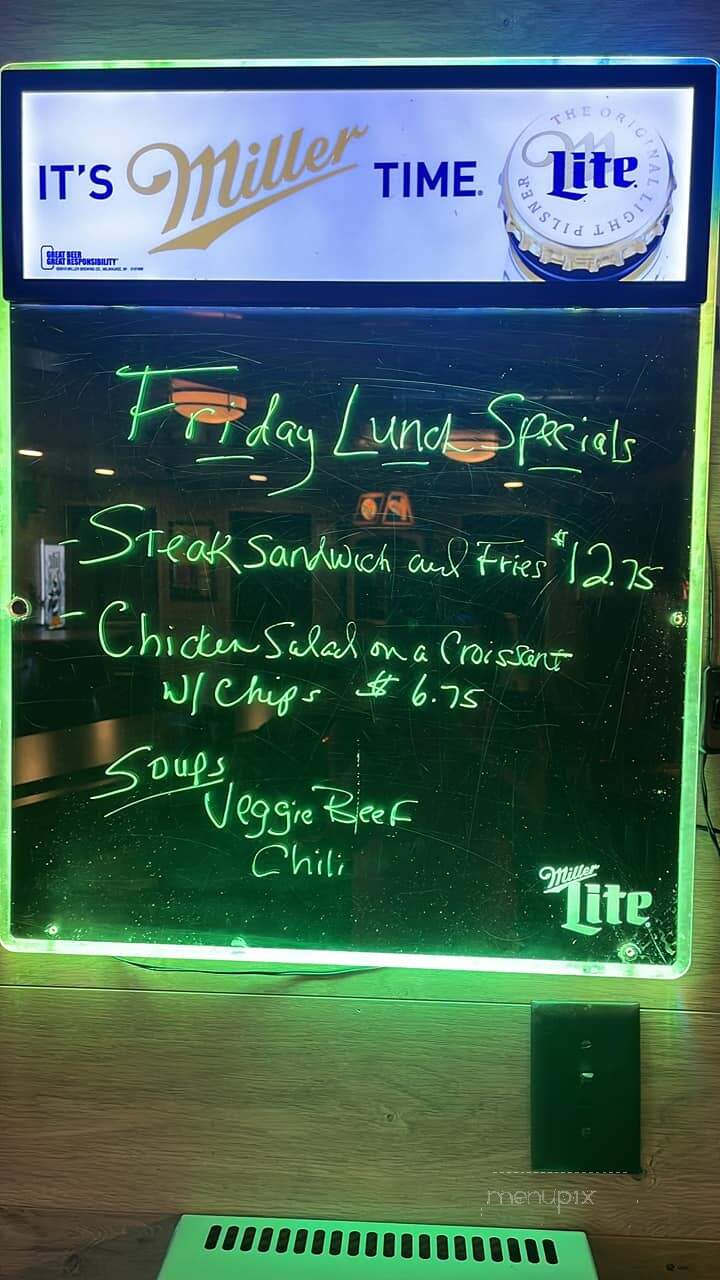 IT'S Miller TIME.
THE ORIGINAL LIGHT PILSNER
Lite
GREAT BEER
GREAT RESPONSIBILITY
Friday Lunch Specials
- Steak Sandwich and Fries $12.75
- Chicken Salad on a Croissant
W/ Chips $6.75
Soups
Veggie Beef
Chili
Miller
Lite
menupix